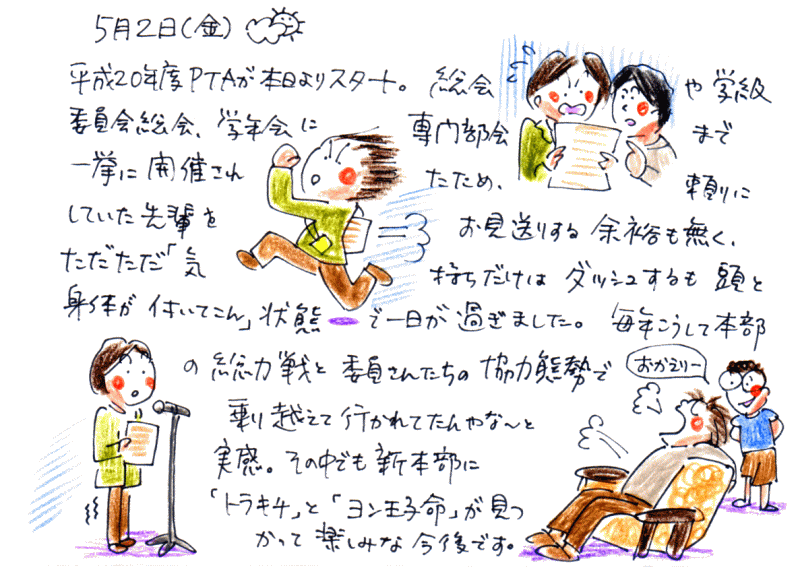 5月2日(金)
平成20年度PTAが本日よりスタート。総会や学級
委員会総会、学年会に専門部会まで
一挙に開催されたため、頼りに
していた先輩をお見送りする余裕も無く、
ただただ「気持ちだけはダッシュするも頭と
身体が付いてこん」状態で一日が過ぎました。毎年こうして本部
の総力戦と委員さんたちの協力態勢で
おかえりー
乗り越えて行かれてたんやな〜と
実感。その中でも新本部に
「トラキチ」と「ヨン王子命」が見つ
かって楽しみな今後です。